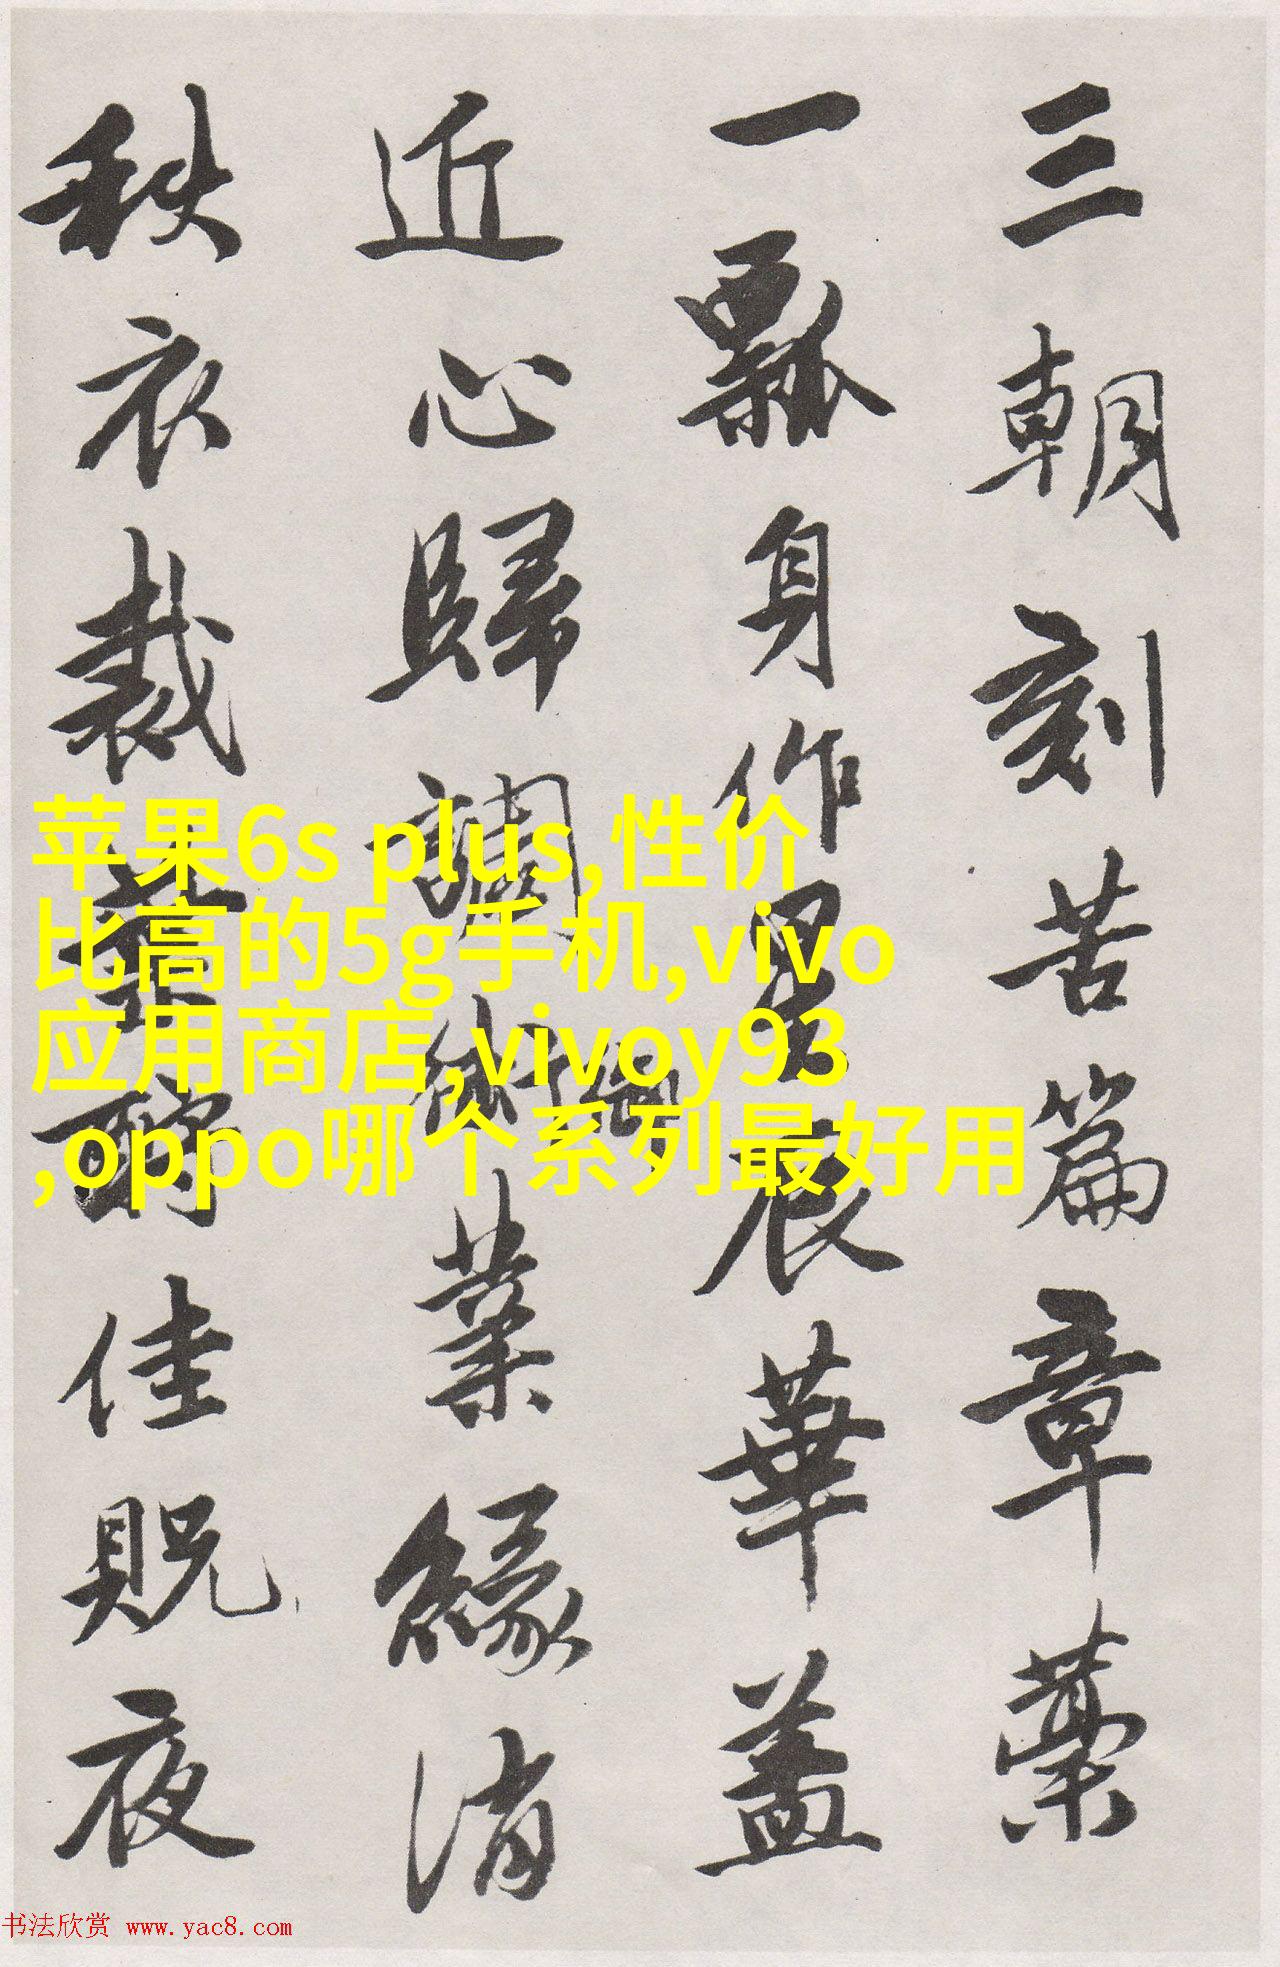 三朝刻苦篇章藁
一瓢身作辰華蓋
近心歸調御業緣消
秩衣裁酧佳貺夜
苹果6s plus,性价
比高的5g手机,vivo
应用商店,vivoy93
,oppo哪个系列最好用
书法欣赏 www.yac8.com